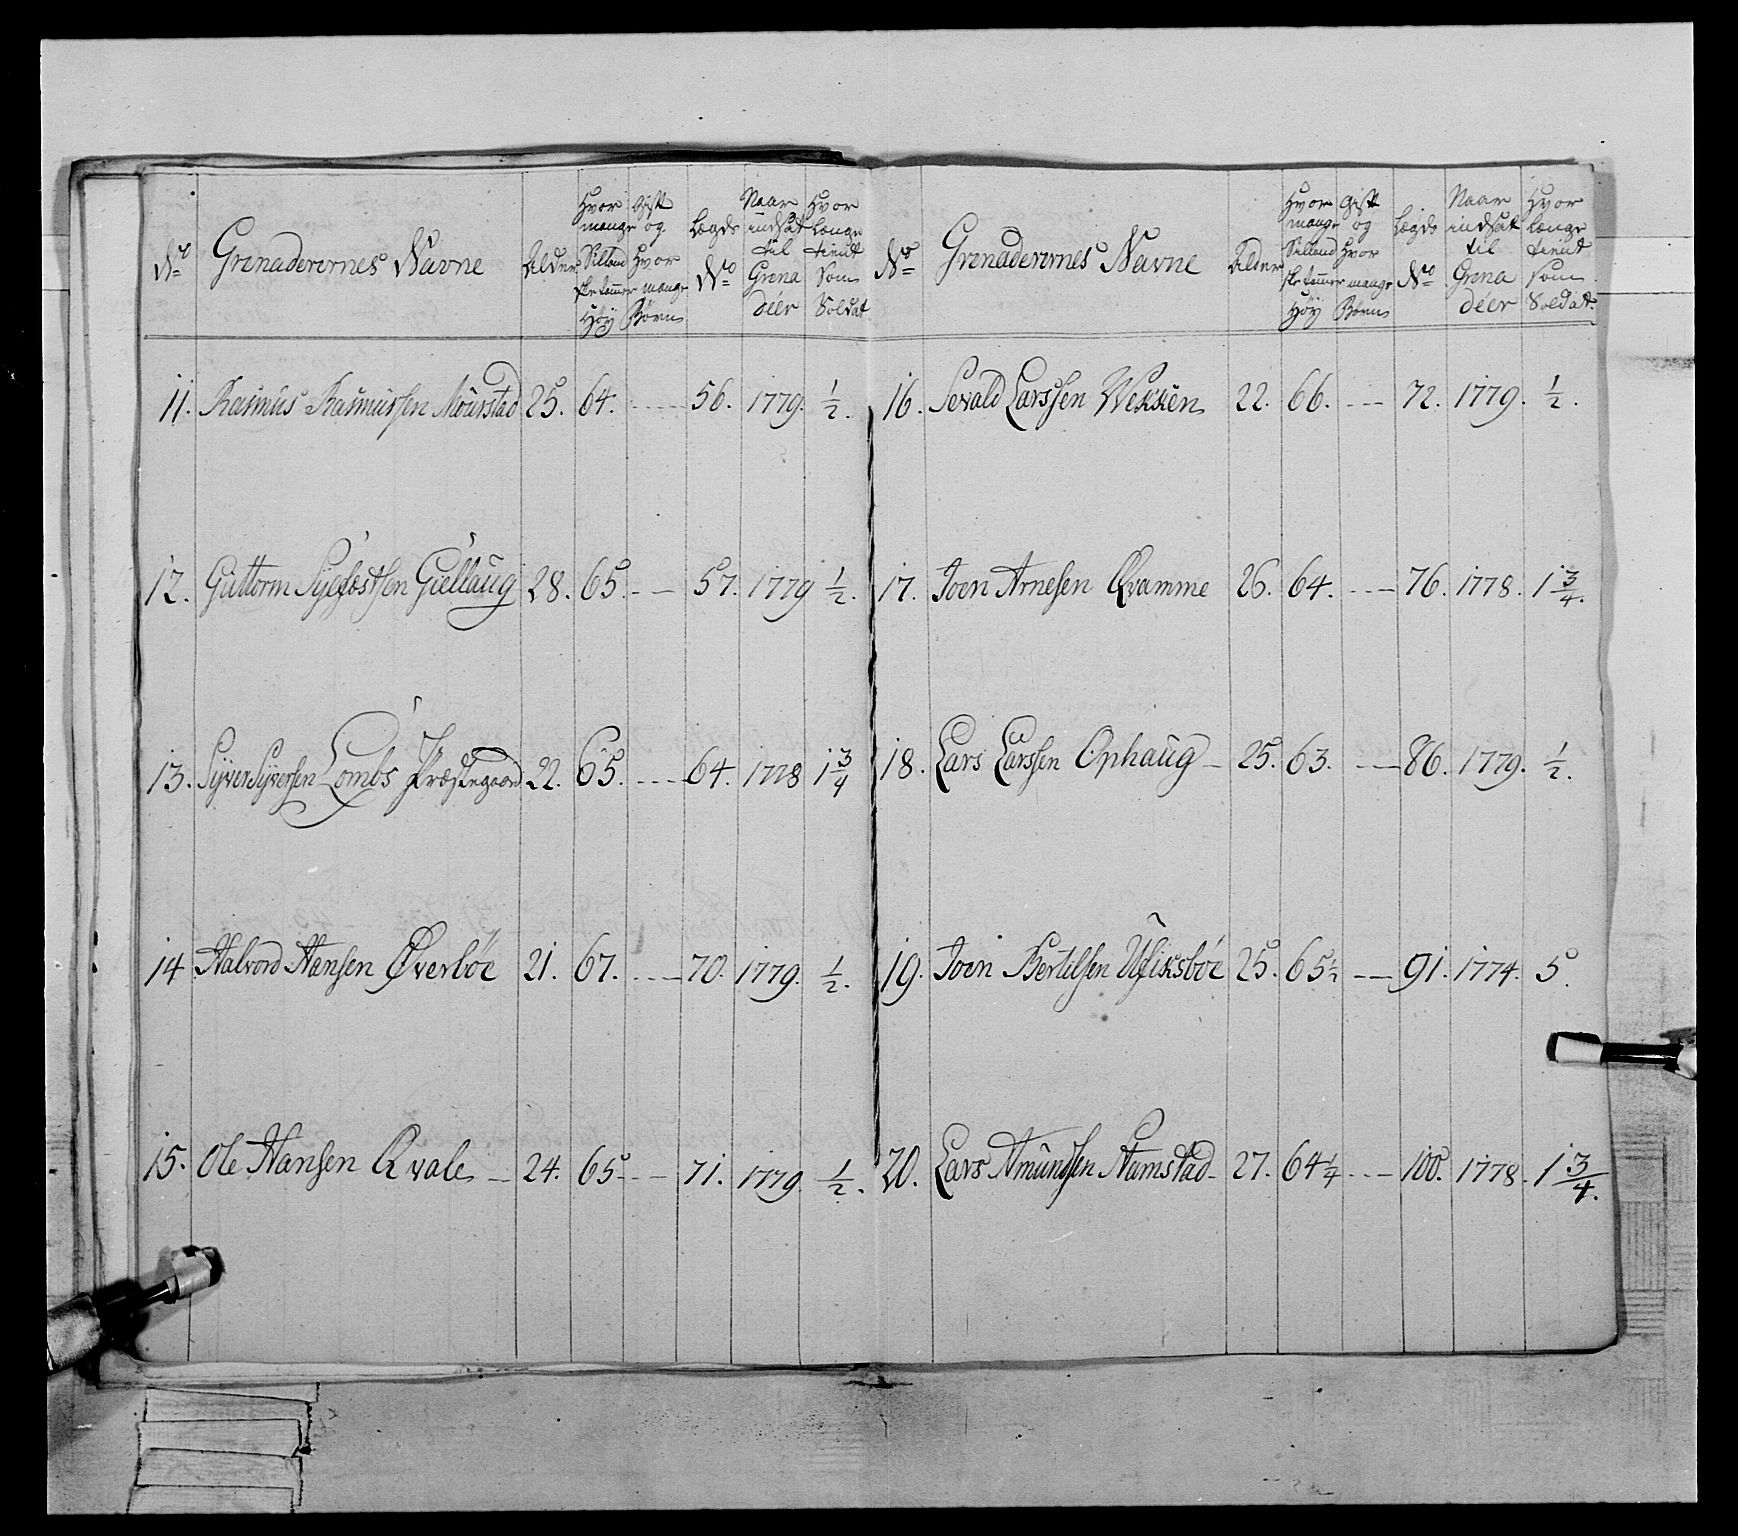 No Grenaderernes Navne Alder Hvor mange Siellandske tommer Høÿ Gift og Hvor mange Børn Lægds No Naar indsat til Grenadéer Hvor længe tient som Soldat
11. Rasmus Rasmussen Mourstad 25. 64. ---- 56. 1779. 1/2.
12. Guttorm Syefæstsen Giellaug 28. 65. --- 57. 1779 1/2.
13. Syver Syversen Lombs Præstegaard 22. 65. ---- 64. 1778 1 3/4
14 Halvord Hansen Øverbøe 21. 67. ---- 70. 1779. 1/2.
15. Ole Hansen Qvale 24. 65 --- 71. 1779 1/2.
No Grenaderernes Navne Alder Hvor mange Siellandske tommer Høÿ Gift og Hvor mange Børn Lægds No Naar indsat til Grenadéer Hvor længe tient som Soldat.
16. Sevald Larssen Wekken 22. 66. --- 72. 1779. 1/2.
17. Joen Arnesen Qvamme 26. 64. --- 76. 1778. 1 3/4.
18. Lars Larssen Ophaug 25. 63. --- 86. 1779. 1/2.
19. Joen Bertelsen Ulfiksbøe 25. 65 1/2 --- 91. 1774. 5.
20. Lars Amundsen Stamstad 27. 64 1/4 --- 100. 1778. 1 3/4.